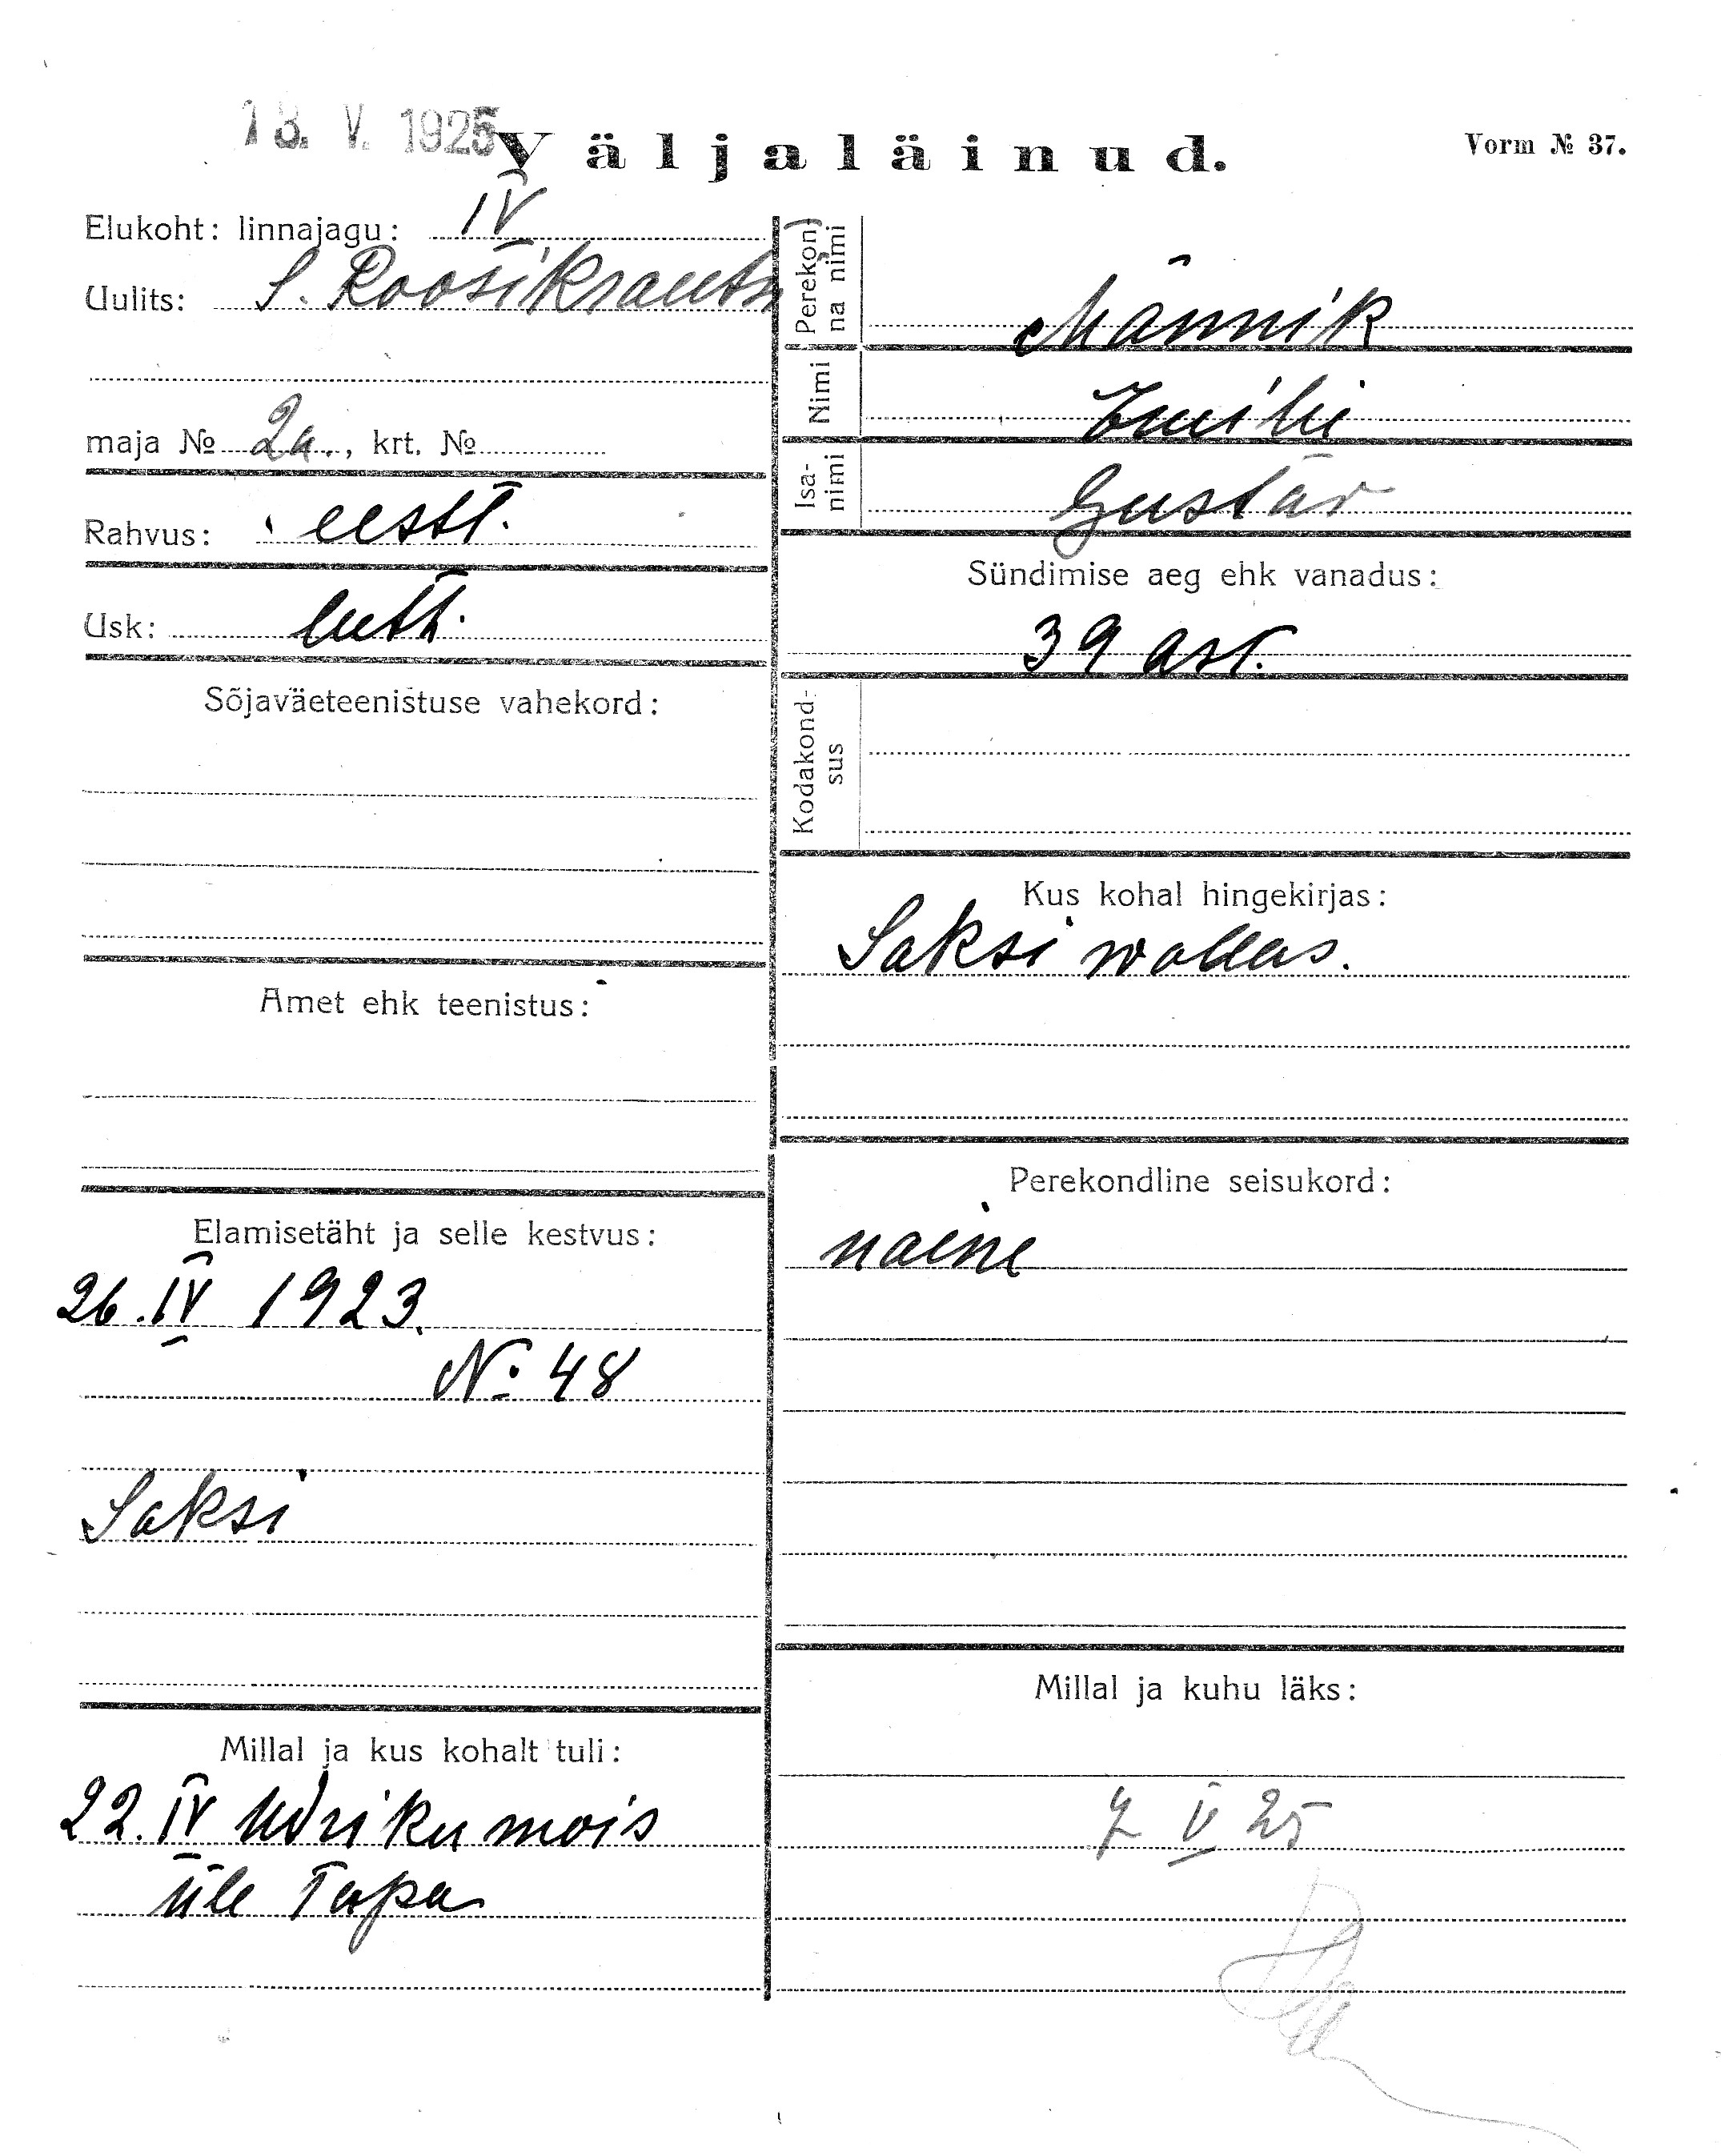 13. V. 1925
Väljaläinud.
Vorm № 37.
Elukoht: linnajagu: IV
Uulits: S. Roosikrantsi
maja № 2a., krt. №
Rahvus: eestl.
Usk: luth.
Sõjaväeteenistuse vahekord:
Amet ehk teenistus:
Elamisetäht ja selle kestvus:
26. IV 1923.
№ 48
Saksi
Millal ja kus kohalt tuli:
22. IV Udriku mois
üle Tapa
Perekonna nimi
Männik
Nimi
Emilie
Isa-nimi
Gustav
Sündimise aeg ehk vanadus:
39 ast.
Kodakond-sus
Kus kohal hingekirjas:
Saksi wallas.
Perekondline seisukord:
naine
Millal ja kuhu läks:
7 V 25